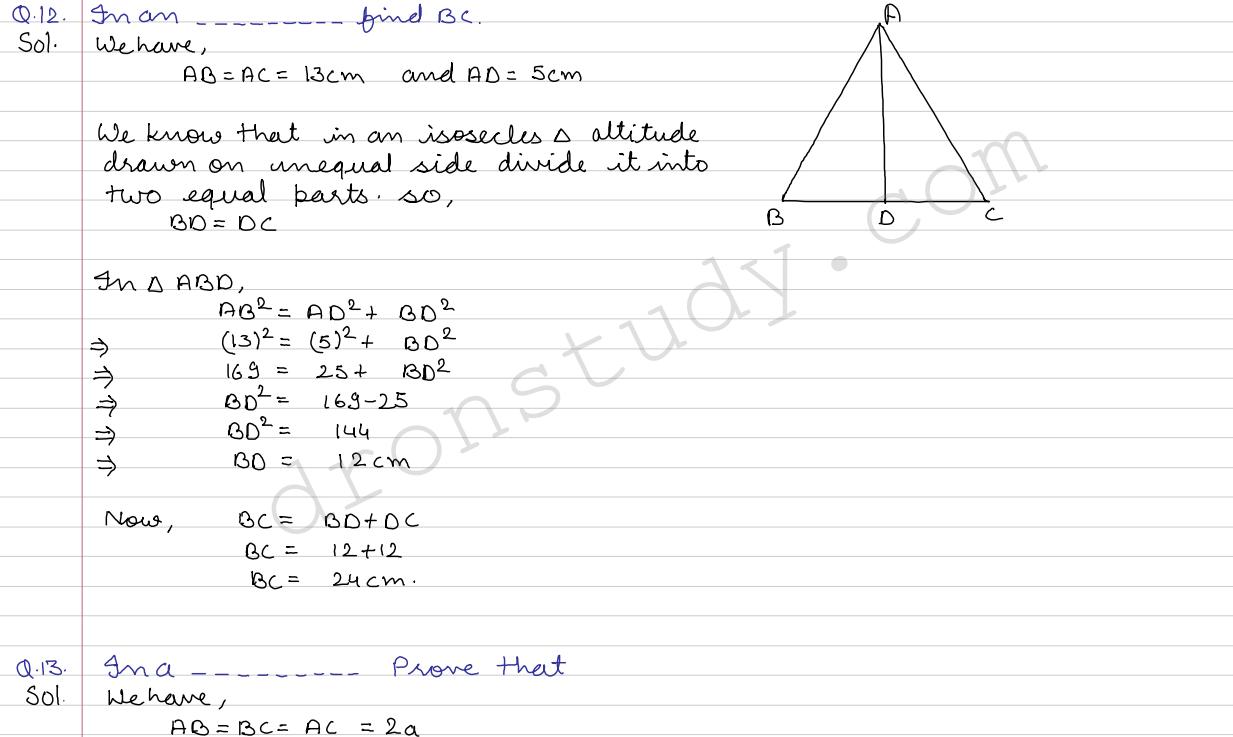 Q.12. In an _ _ _ _ _ _ _ _ _ find BC.
Sol. We have,
AB = AC = 13cm and AD = 5cm
We know that in an isosecles △ altitude
drawn on unequal side divide it into
two equal parts. so,
BD = DC
In △ ABD,
AB² = AD² + BD²
⇒ (13)² = (5)² + BD²
⇒ 169 = 25 + BD²
⇒ BD² = 169-25
⇒ BD² = 144
⇒ BD = 12cm
Now, BC = BD + DC
BC = 12+12
BC = 24cm.
A
B D C
Q.13. In a _ _ _ _ _ _ _ _ _ Prove that
Sol. We have,
AB = BC = AC = 2a
dronstudy.com